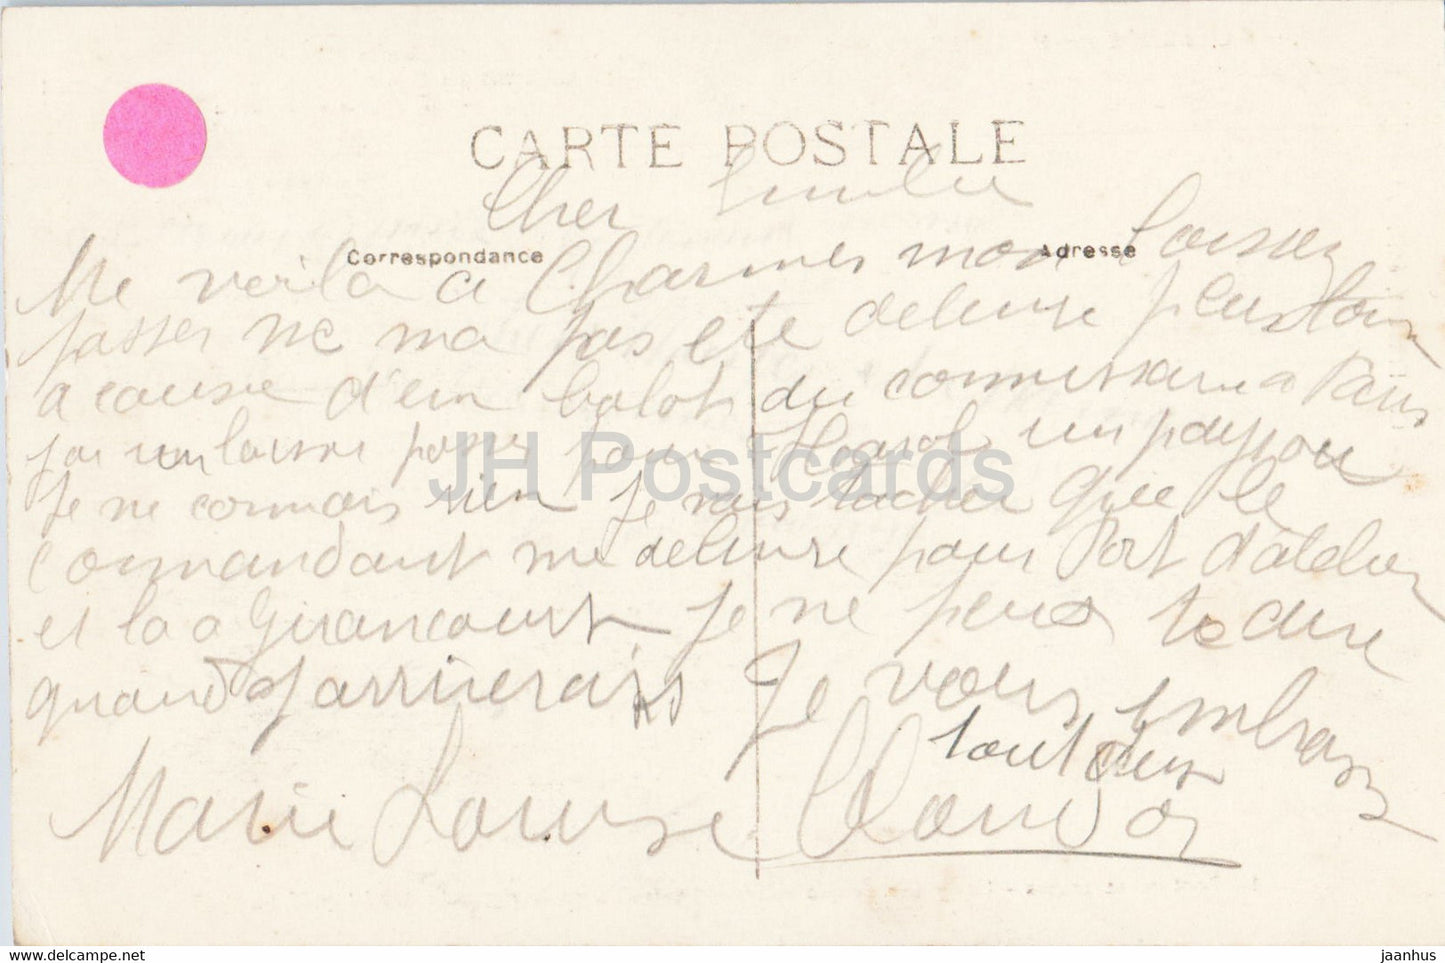 CARTE POSTALE
Cher
Correspondance
Adresse
Me voila a Charmes mon Laissez
passer ne ma pas ete delivre plustau
a cause d'un balot du commissaire a Paris
jai un laisse passe pour un payson
Je ne connais rien Je vais tacher que le
Commandant me delivre pour Port d'atelier
et la a Girancourt Je ne peux te dire
quand J'arrierais Je vous embrasse
tout deux
Marie Louise
JH Postcards
www.delcampe.net
jaanhus